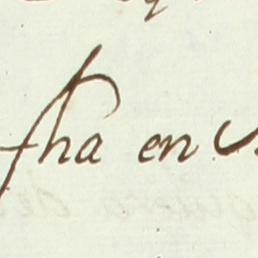 fha en